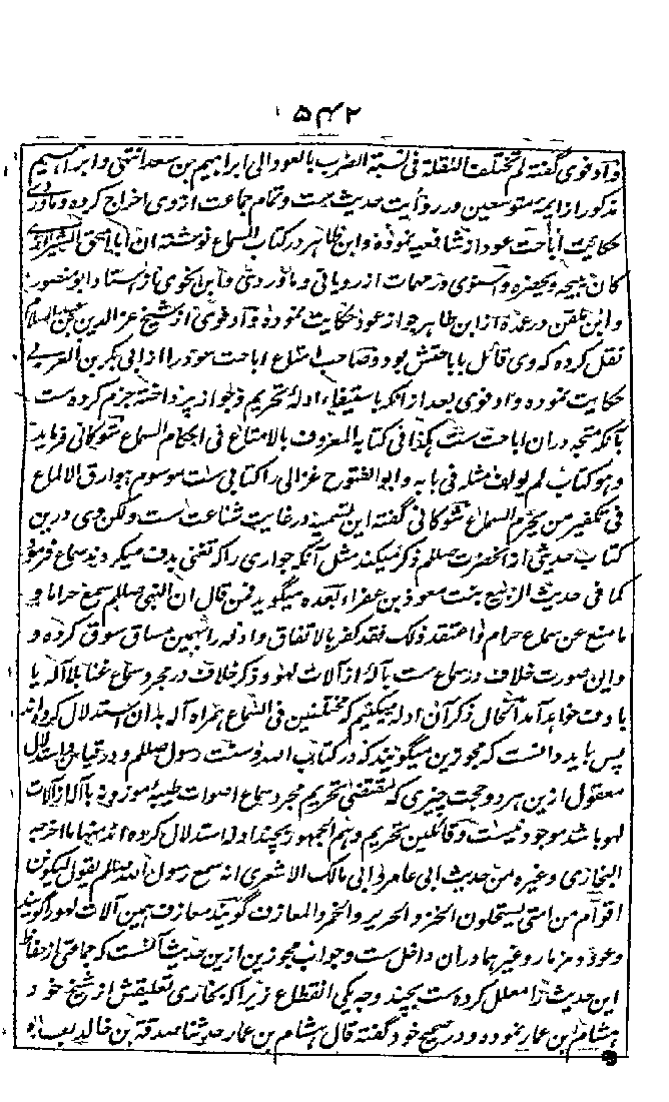 ۵۴۲
وادفوی گفته لم تختلف النقلة فی نسبة الضرب بالعود الی ابراهیم بن سعد انتهی وابراهیم
مذکور از ایمه متوسعین در روایت حدیث ست و تمام جماعت از وی اخراج کرده و ماوردی
حکایت اباحت عود از شافعیه نموده و ابن طاهر در کتاب السماع نوشته ان ابا اسحق الشیرازی
کان یبیحه ویحضره و اسنوی در مهمات از رویانی و ماوردی و ابن النحوی از استاد ابو منصور
و ابن ملقن در عمده از ابن طاهر جواز عود حکایت نموده و ادفوی از شیخ عز الدین بن عبد السلام
نقل کرده که وی قائل باباحتش بود و صاحب امتاع اباحت عود را از ابی بکر بن العربی
حکایت نموده و ادفوی بعد از آنکه باستیفاء ادلهٔ تحریم و جواز پرداخته جزم کرده ست
بآنکه متجه دران اباحت ست هکذا فی کتابه المعروف بالامتاع فی احکام السماع شوکانی فرماید
وهو کتاب لم یولف مثله فی بابه و ابو الفتوح غزالی را کتابی ست موسوم ببوارق الالماع
فی تکفیر من یحرم السماع شوکانی گفته این تسمیه در غایت شناعت ست ولکن وی درین
کتاب حدیثی از آنحضرت صلعم ذکر میکند مثل آنکه جواری را که تغنی بدف میکردند سماع فرمود
کما فی حدیث الربیع بنت معوذ بن عفراء بعده میگوید فمن قال ان النبی صلعم سمع حراما و
ما منع عن سماع حرام واعتقد ذلک فقد کفر بالاتفاق و ادله را بهمین مساق سوق کرده و
واین صورت خلاف در سماع ست بآلهٔ از آلات لهو و ذکر خلاف در مجرد سماع غنا بلا آله یا
با دف خواهد آمد الحال ذکر آن ادله میکنیم که مختلفین فی السماع همراه آله بدان استدلال کرده اند
پس باید دانست که مجوزین میگویند که در کتاب الله و سنت رسول صلعم و در قیاس و استدلال
معقول ازین هر دو حجت چیزی که مقتضی تحریم مجرد سماع اصوات طیبهٔ موزونه بآله از آلات
لهو باشد موجود نیست و قائلین بتحریم وهم الجمهور بچند ادله استدلال کرده اند منها ما اخرجه
البخاری وغیره من حدیث ابی عامر و ابی مالک الاشعری انه سمع رسول الله صلعم یقول لیکونن
اقوام من امتی یستحلون الحر والحریر والخمر والمعازف گویند معازف همین آلات لهو را گویند
و عود و مزمار و غیرها دران داخل ست و جواب مجوزین ازین حدیث آنست که جماعتی از حفاظ
این حدیث را معلل کرده ست بچند وجه یکی انقطاع زیرا که بخاری تعلیقش از شیخ خود
هشام بن عمار نموده و در صحیح خود گفته قال هشام بن عمار حدثنا صدقة بن خالد بعده